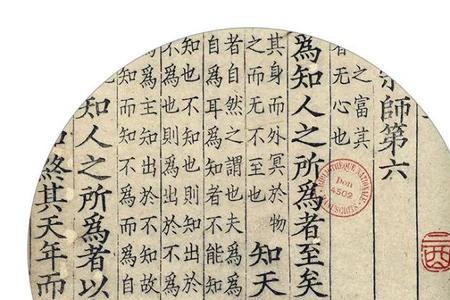 宗師第六
之富其
者无心也
爲知人之所爲者至矣
其身而外冥於物
之而无不至也
知天
者自然之謂也夫爲
自爲耳爲知者不能知
知也不知也則知出於
不爲也則爲出於不爲
爲主知出於不知故
知而知不爲
知人之所爲者以
終其天年而
BIBLIOTHÈQUE NATIONALE
Don
4502
MANUSCRITS